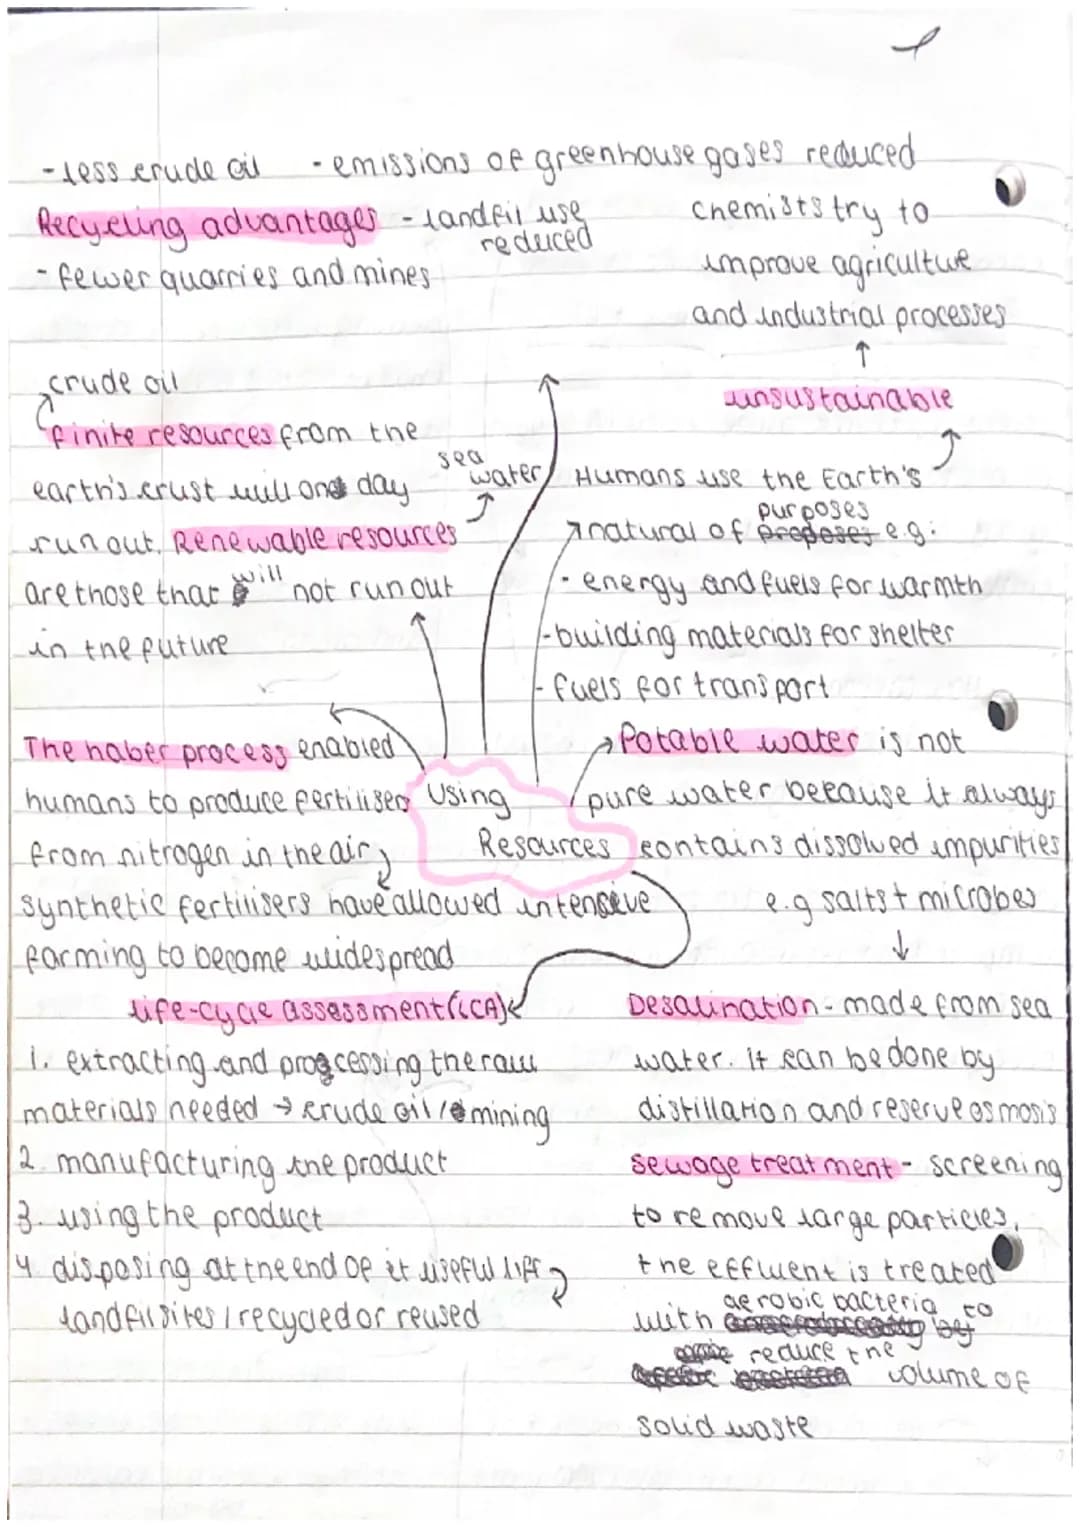 -less crude oil   -emissions of greenhouse gases reduced
Recycling advantages - landfil use
reduced
- fewer quarries and mines
chemists try to
improve agriculture
and industrial processes
↑
unsustainable
crude oil
finite resources from the
earth's crust will one day
run out. Renewable resources
are those that will not run out
in the future
sea
water
Humans use the Earth's
purposes
natural of proposes e.g:
- energy and fuels for warmth
-building materials for shelter
- fuels for transport
The haber process enabled
humans to produce fertilisers
from nitrogen in the air,
synthetic fertilisers have allowed intensive
farming to become widespread
Using
Resources
Potable water is not
pure water because it always
contains dissolved impurities
e.g salts + microbes
↓
Desalination - made from sea
water. it can be done by
distillation and reserve osmosis
sewage treatment - screening
to remove large particles.
the effluent is treated
aerobic bacteria to
with by
reduce the
volume of
solid waste
life-cycle assessment (LCA)
1. extracting and processing the raw
materials needed → crude oil / mining
2. manufacturing the product
3. using the product
4. disposing at the end of it useful life
landfil sites / recycled or reused